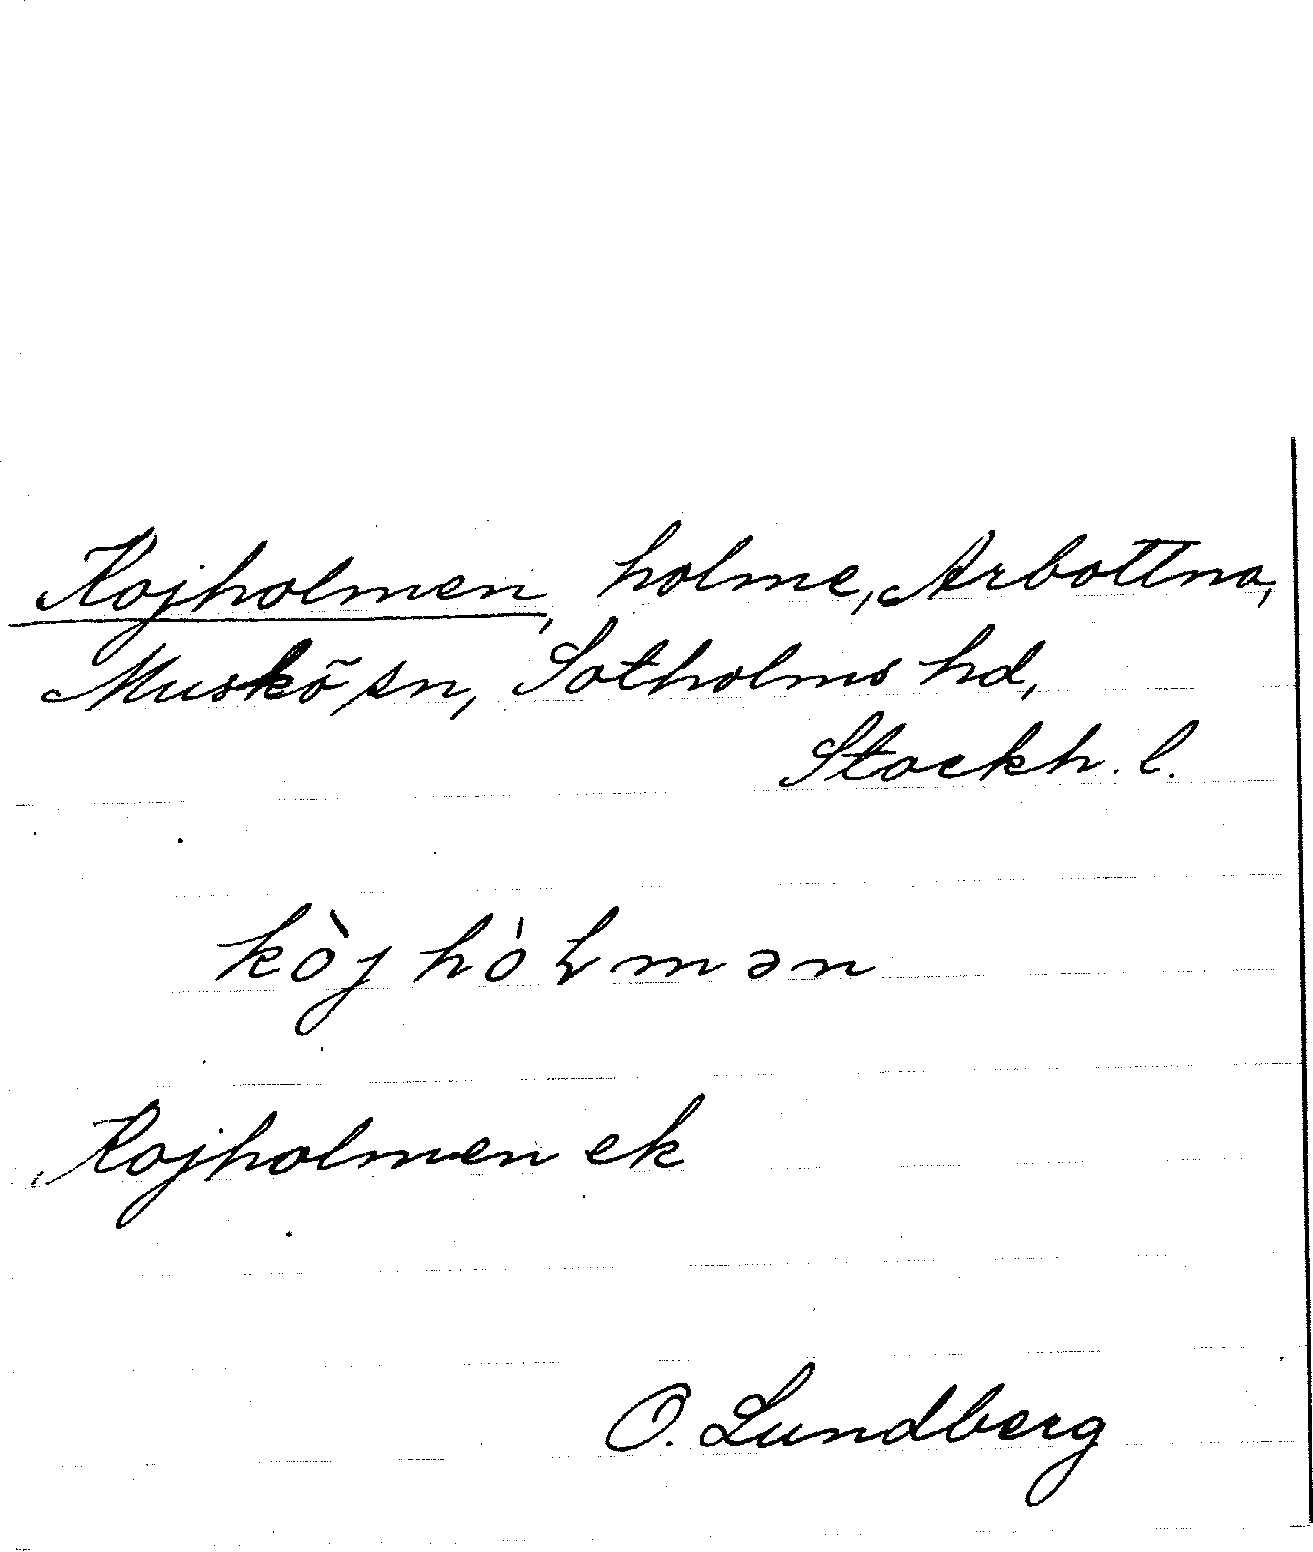 Kojholmen, holme, Arbottna,
Muskö sn, Sotholms hd,
Stockh. l.
kòjhòɫmən
Kojholmen ek
O. Lundberg